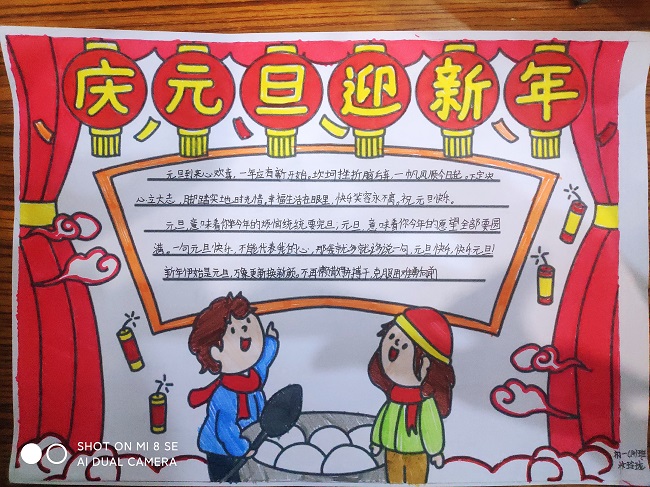 庆元旦迎新年
元旦到来心欢喜，一年应有新开始。坎坷挫折脑后弃，一帆风顺今日起。下定决
心立大志，脚踏实地时光惜。幸福生活在眼里，快乐笑容永不离。祝元旦快乐。
元旦，意味着你今年的烦恼统统要完旦；元旦，意味着你今年的愿望全部要圆
满。一句元旦快乐，不能代表我的心，那么就多说一句，元旦快乐，快乐元旦！
新年伊始是元旦，万象更新换新颜。不再懒散勤拼干，克服困难勇向前
SHOT ON MI 8 SE
AI DUAL CAMERA